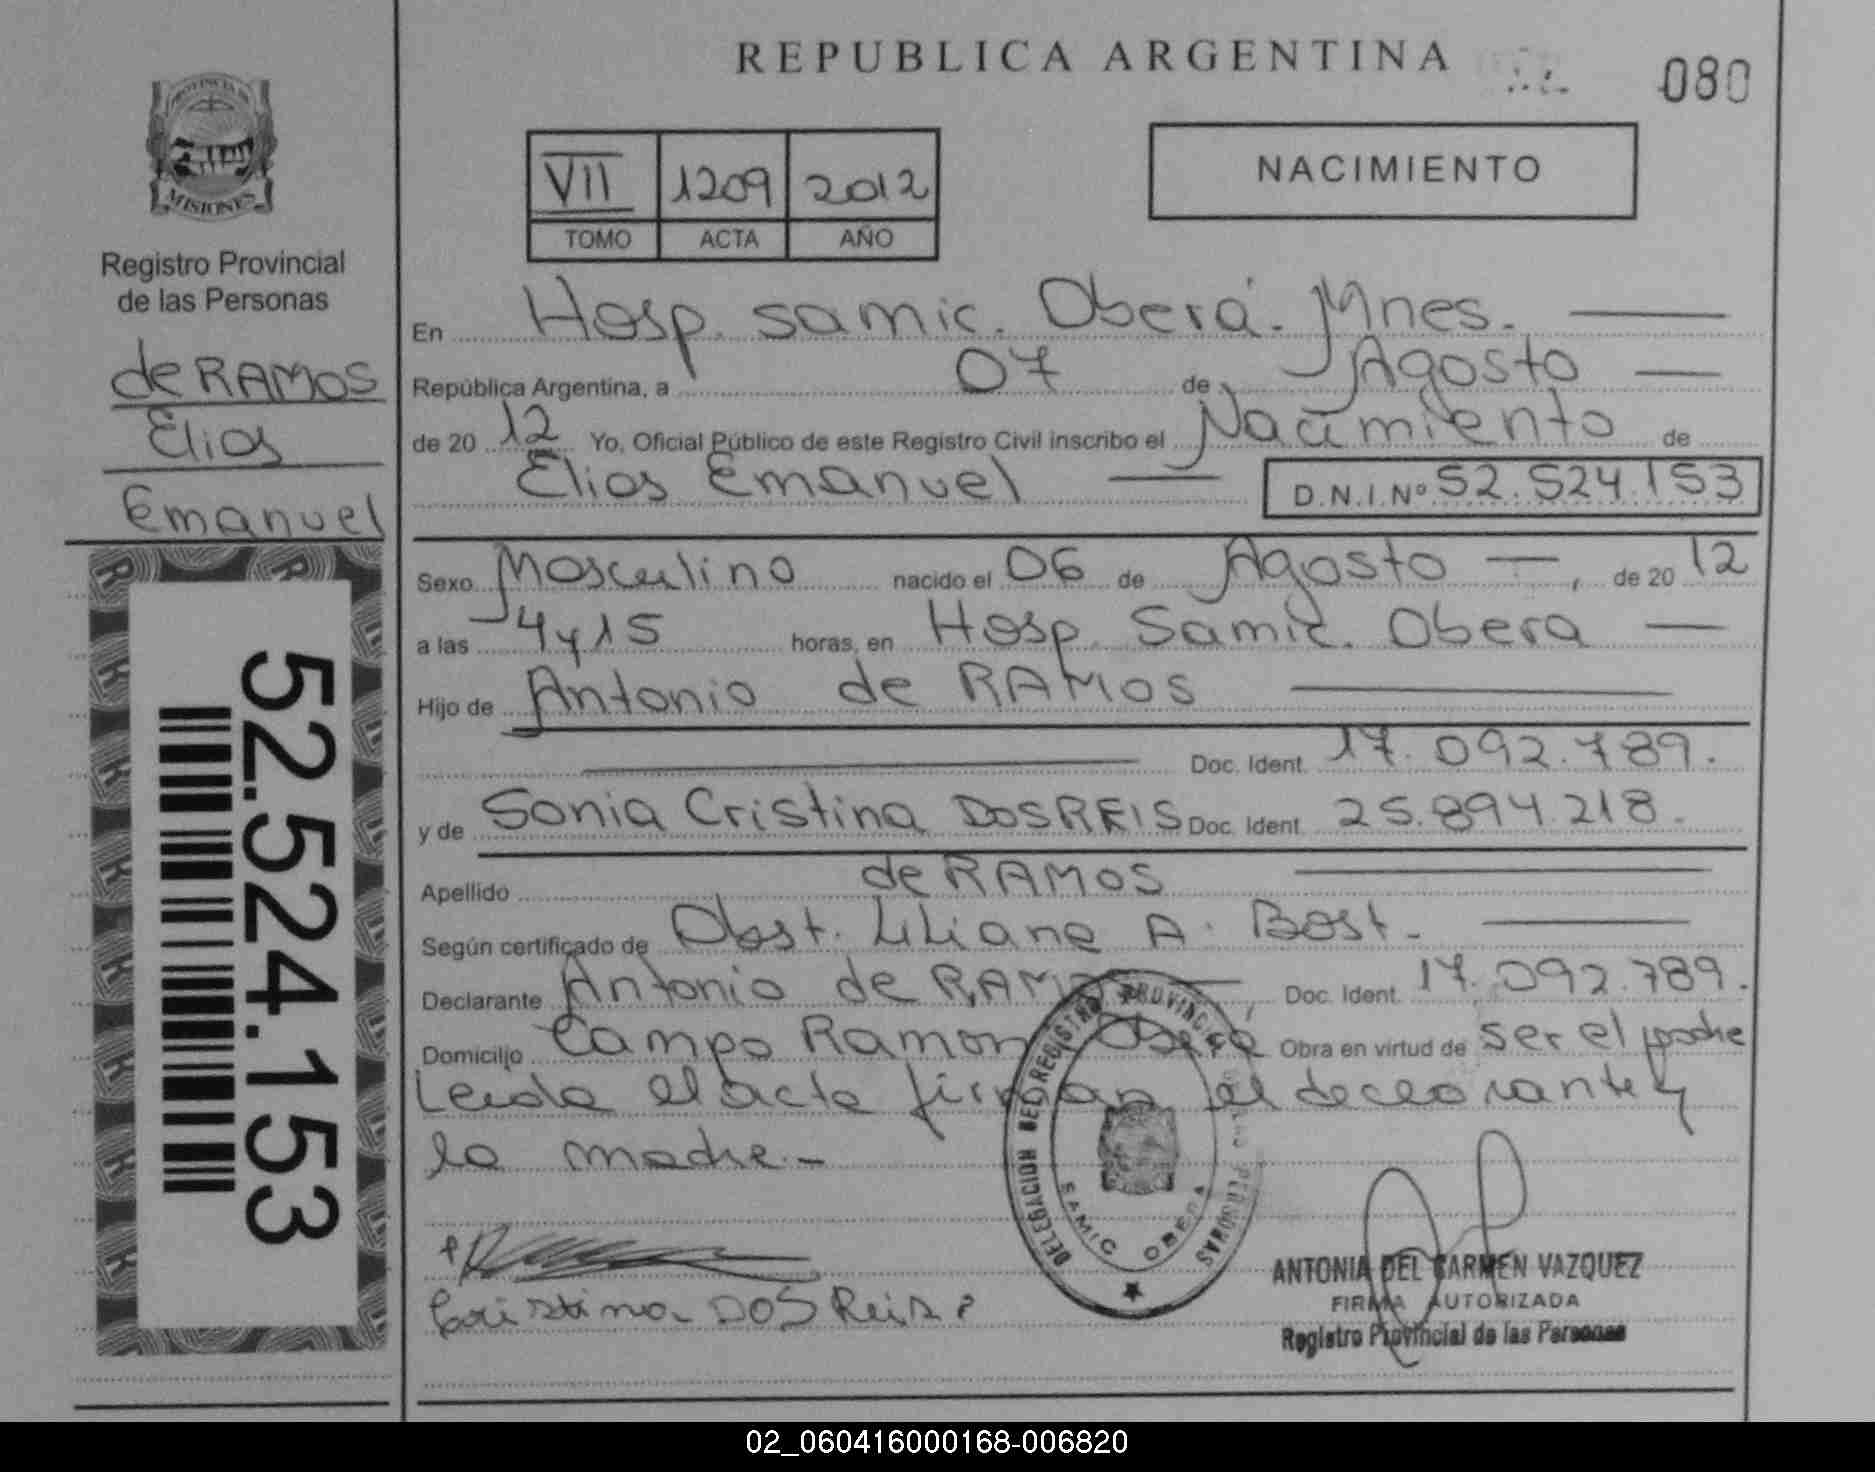 REPUBLICA ARGENTINA
080
PROVINCIA DE
MISIONES
Registro Provincial
de las Personas
de RAMOS
Elias
Emanuel
52.524.153
VII 1209 2012
TOMO ACTA AÑO
NACIMIENTO
En Hosp. Samic. Oberá. Mnes.
República Argentina, a 07 de Agosto
de 20 12 Yo, Oficial Público de este Registro Civil inscribo el Nacimiento de
Elias Emanuel D.N.I.Nº 52.524.153
Sexo Masculino nacido el 06 de Agosto, de 20 12
a las 4 y 15 horas, en Hosp. Samic. Obera
Hijo de Antonio de RAMOS
Doc. Ident. 17.092.789.
y de Sonia Cristina DOS REIS Doc. Ident. 25.894.218.
Apellido de RAMOS
Según certificado de Obst. Liliana A. Bost.
Declarante Antonio de RAMOS, Doc. Ident. 17.092.789.
Domicilio Campo Ramon Obera Obra en virtud de ser el padre
Leida el acta firman el declarante y
la madre.-
DELEGACION DEL REGISTRO PROVINCIAL DE LAS PERSONAS
SAMIC OBERA
Cristina DOS Reis
ANTONIA DEL CARMEN VAZQUEZ
FIRMA AUTORIZADA
Registro Provincial de las Personas
02_060416000168-006820